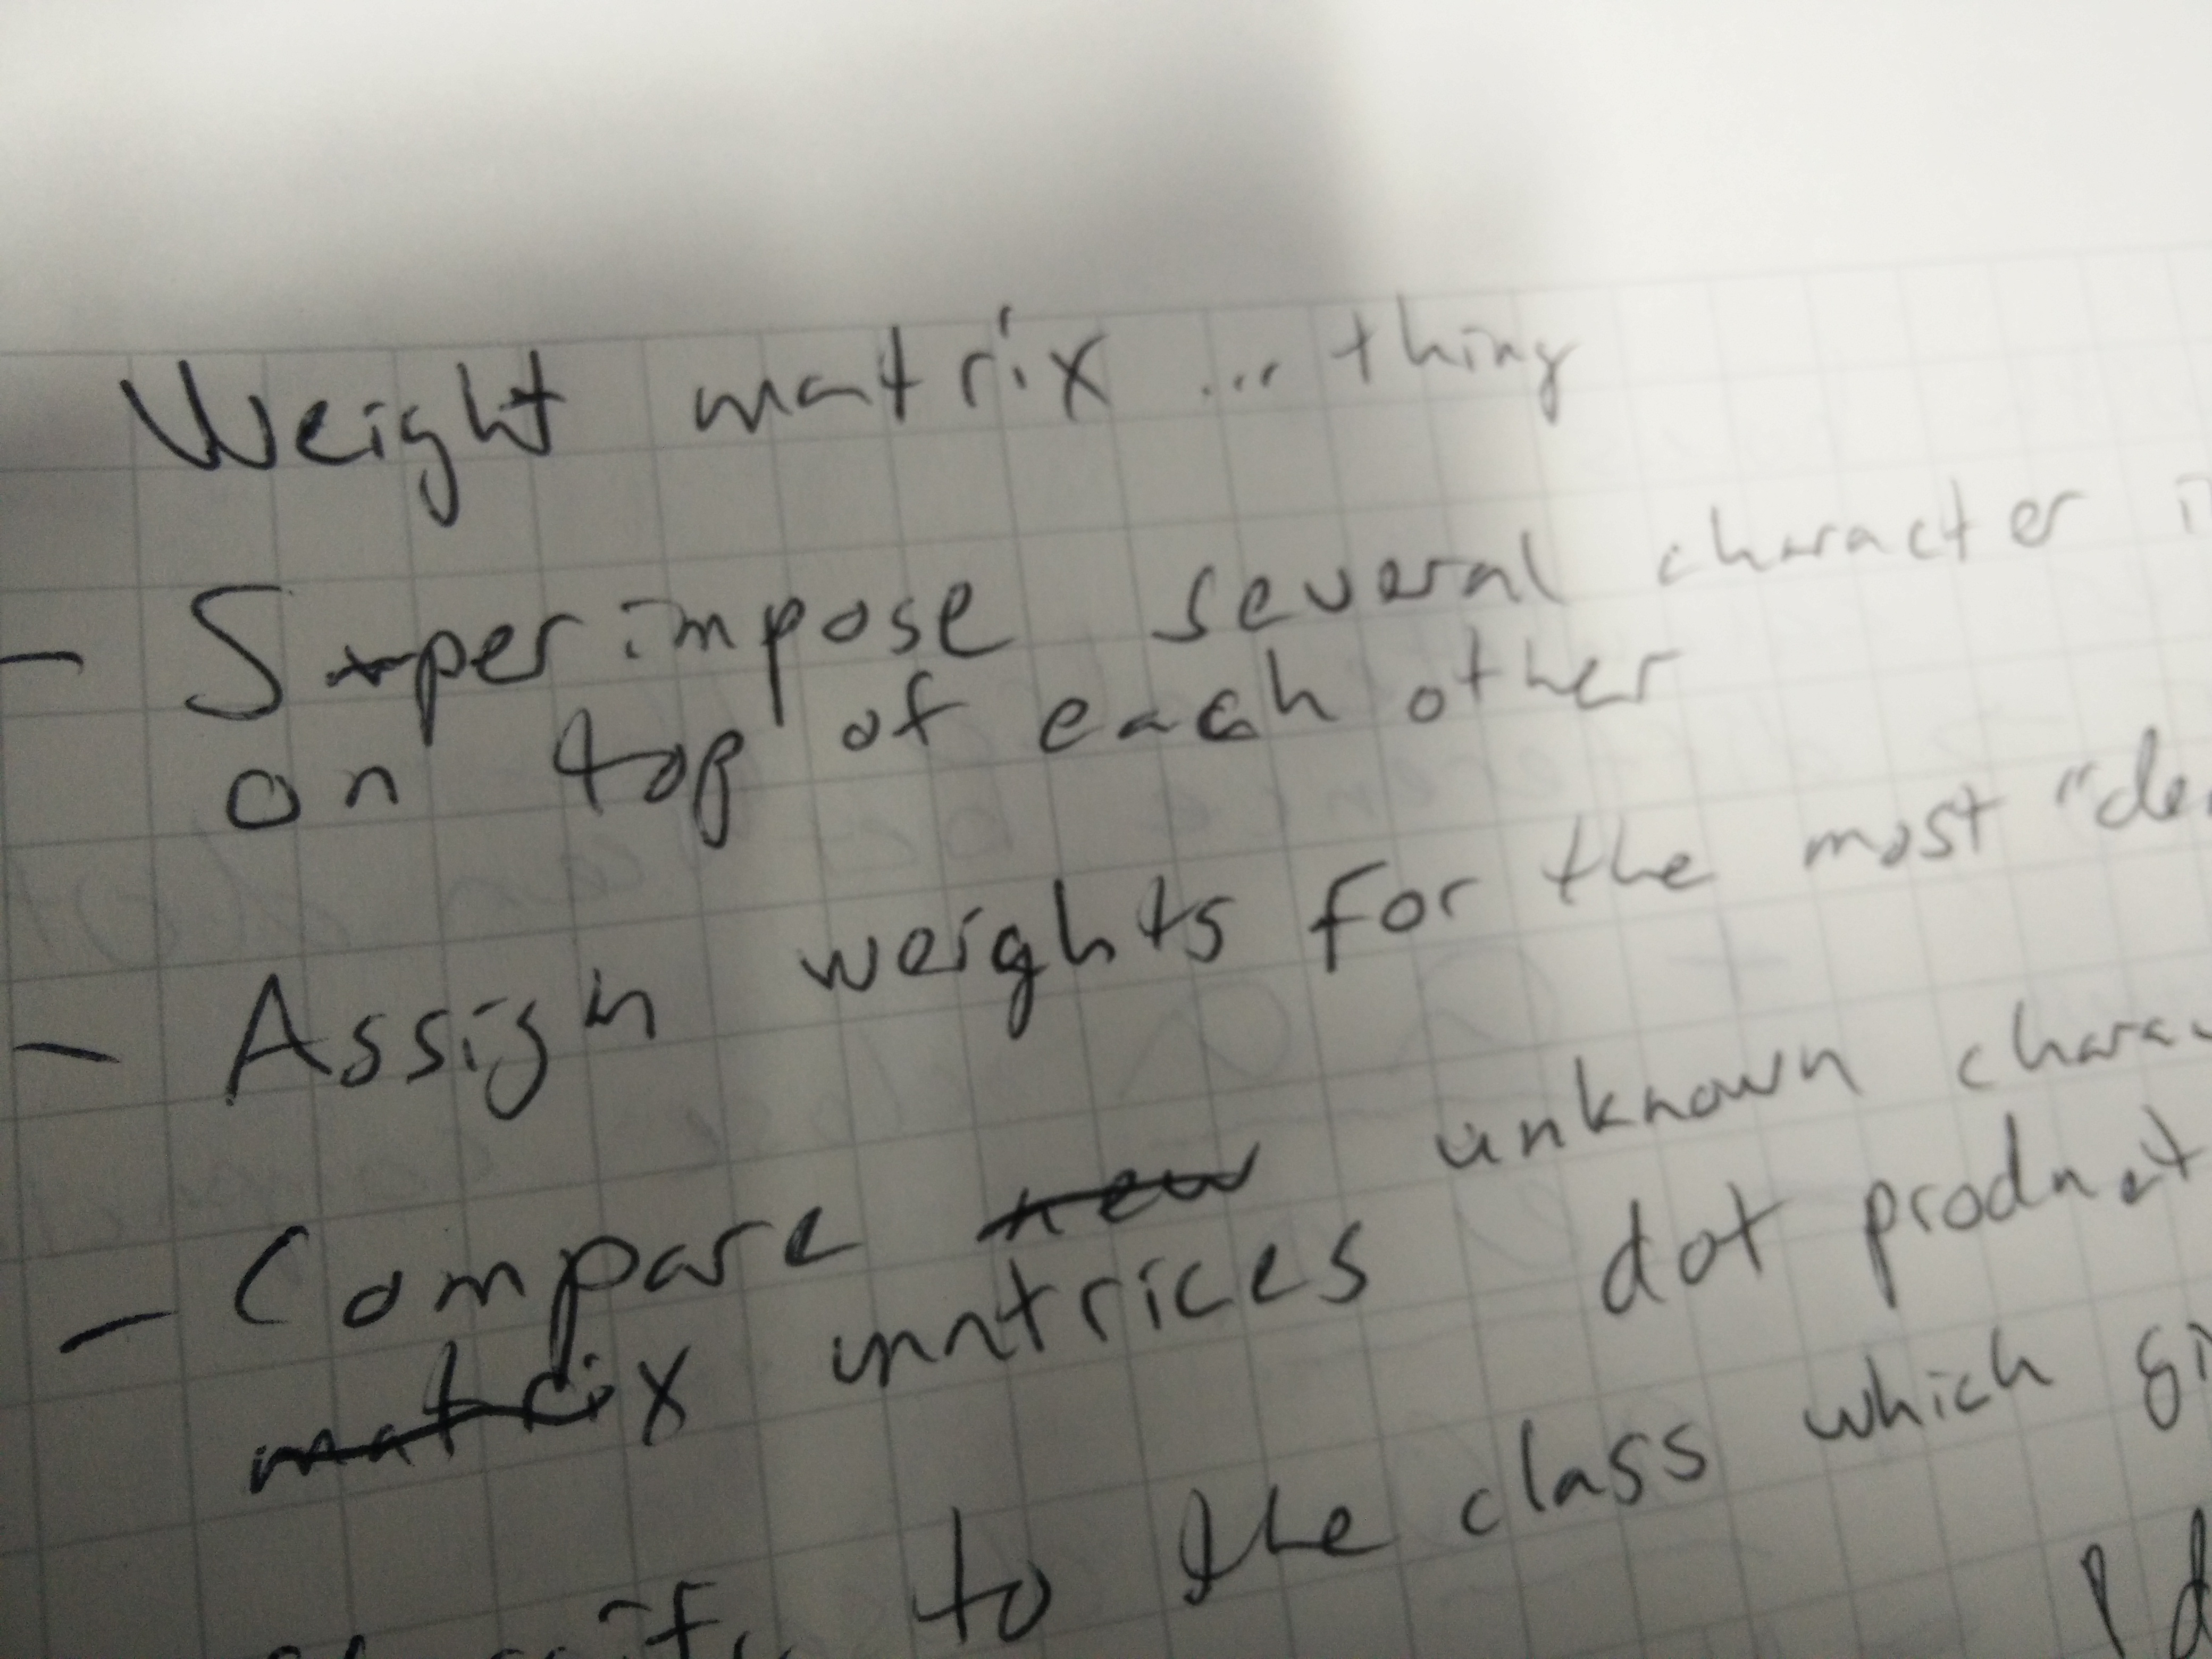 Weight matrix ... thing
- Superimpose several character
on top of each other
- Assign weights for the most
- Compare new unknown
matrix matrices dot product
to the class which